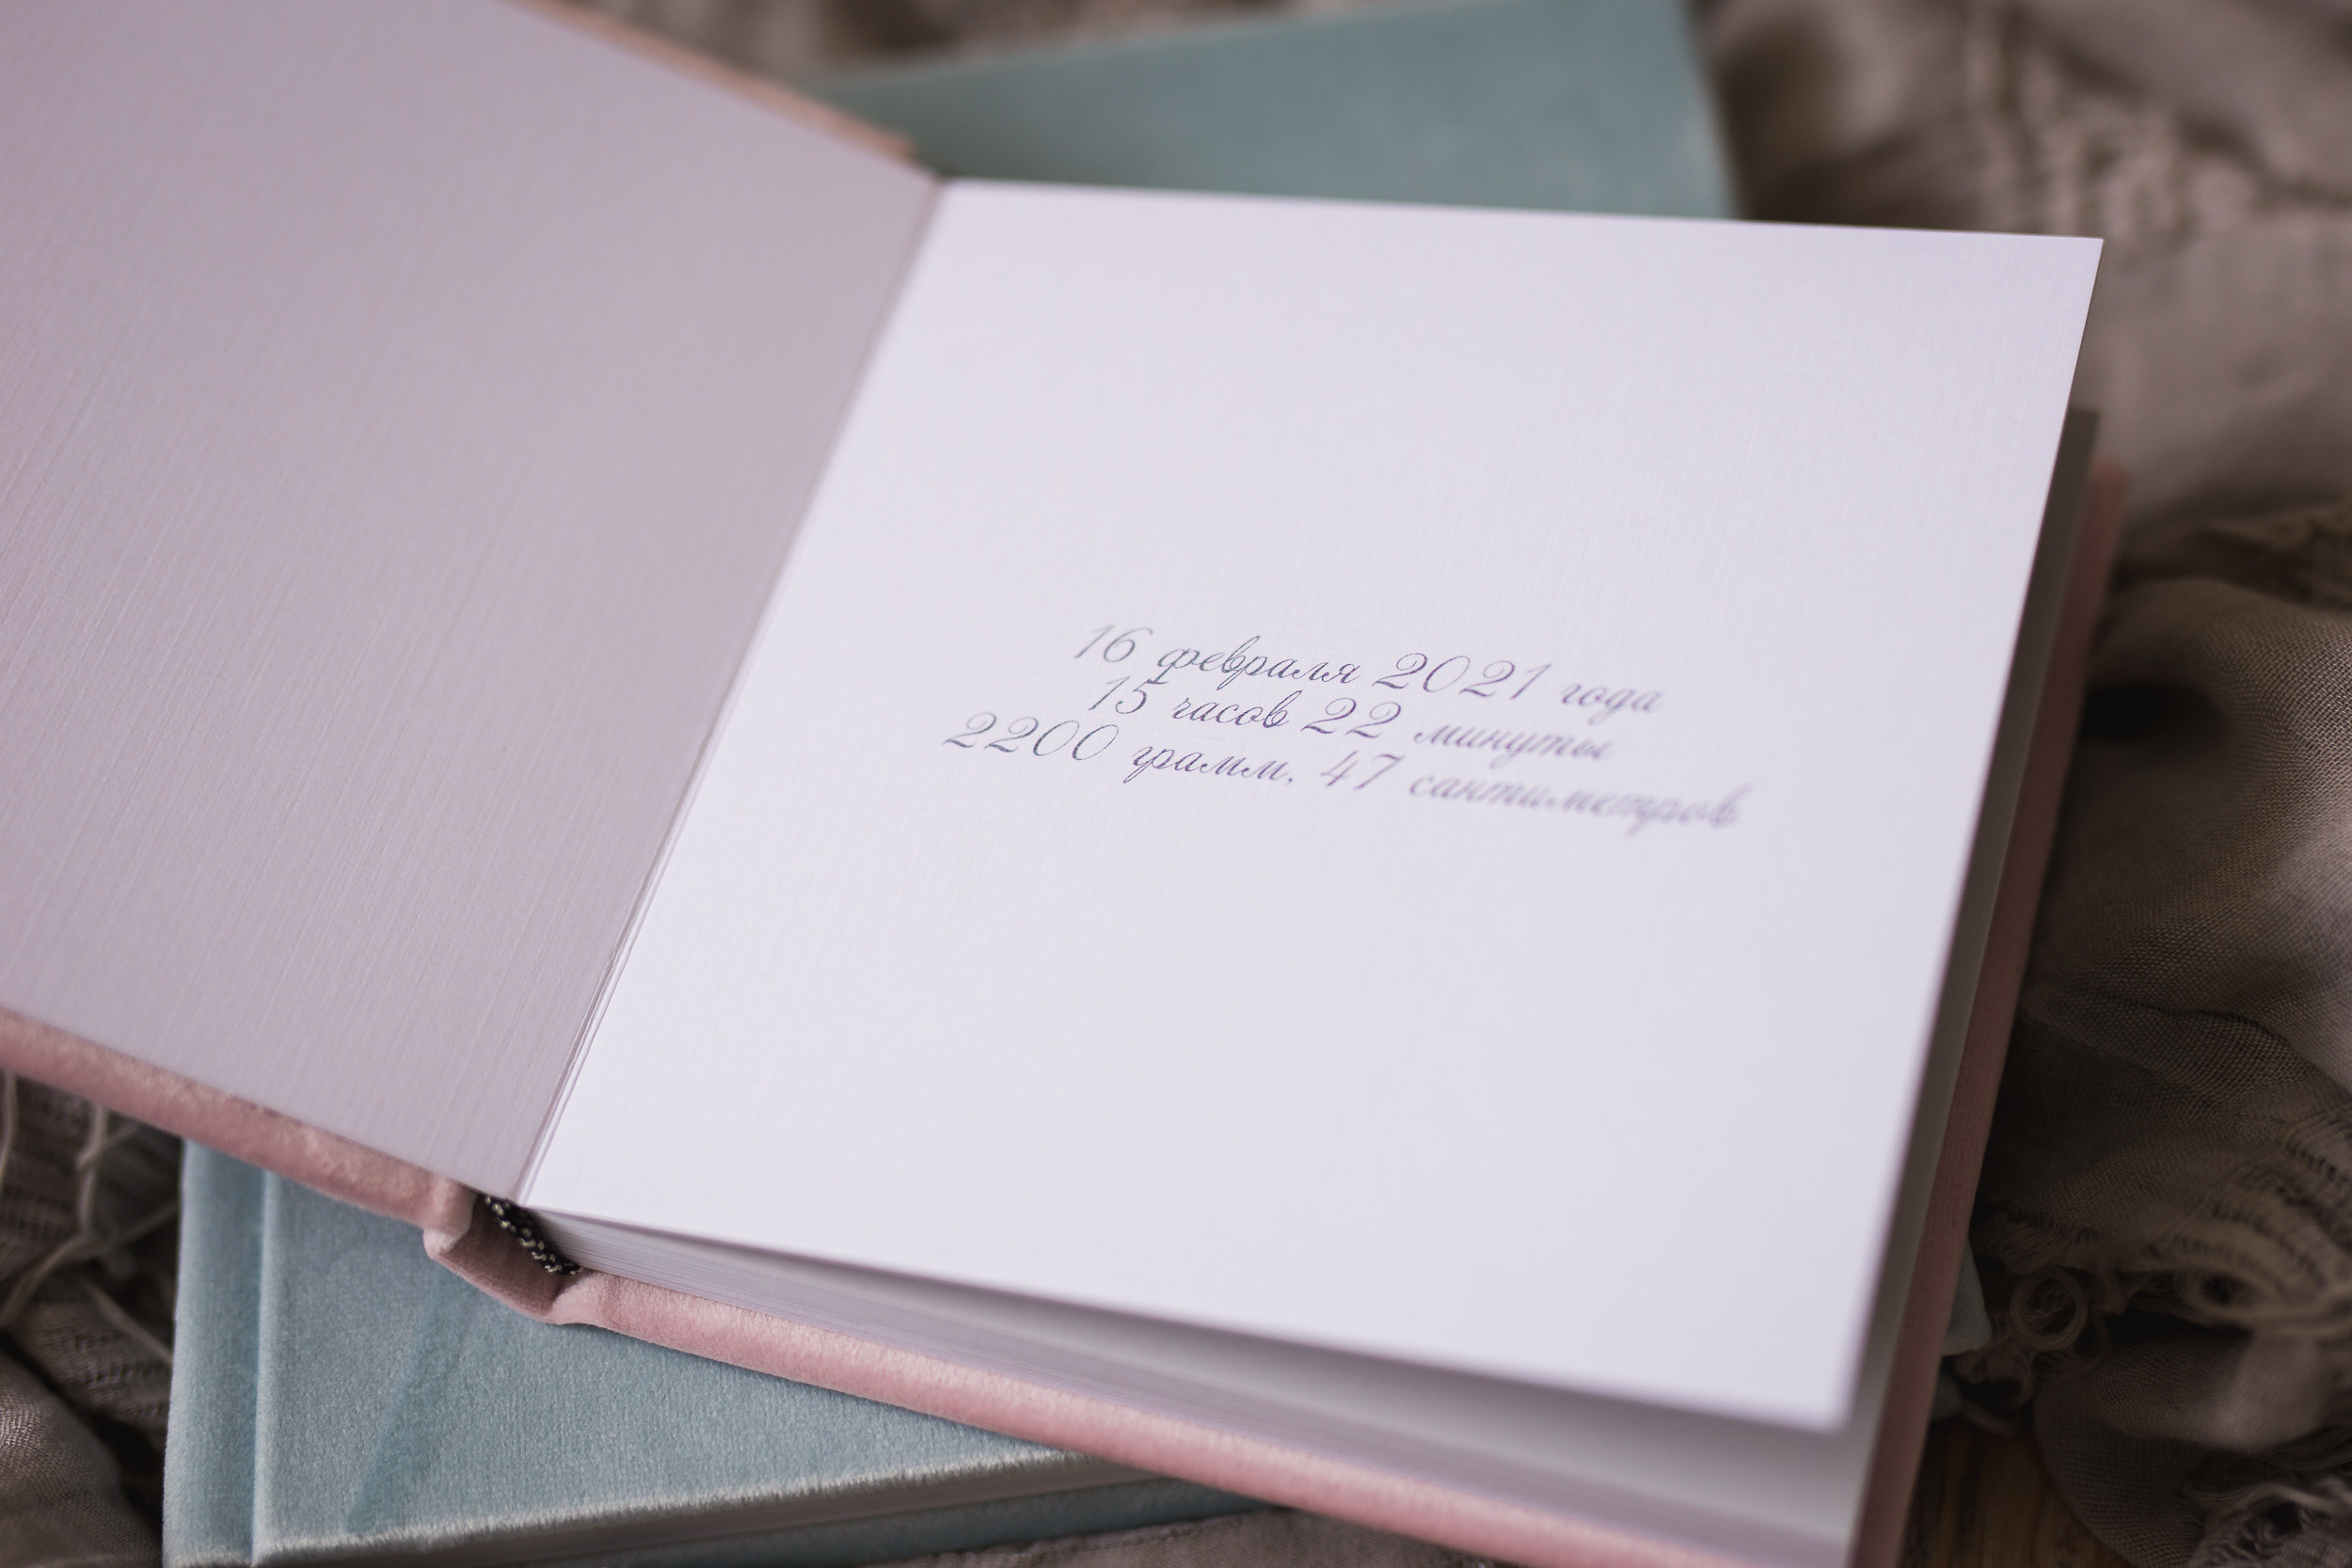 16 февраля 2021 года
15 часов 22 минуты
2200 грамм, 47 сантиметров